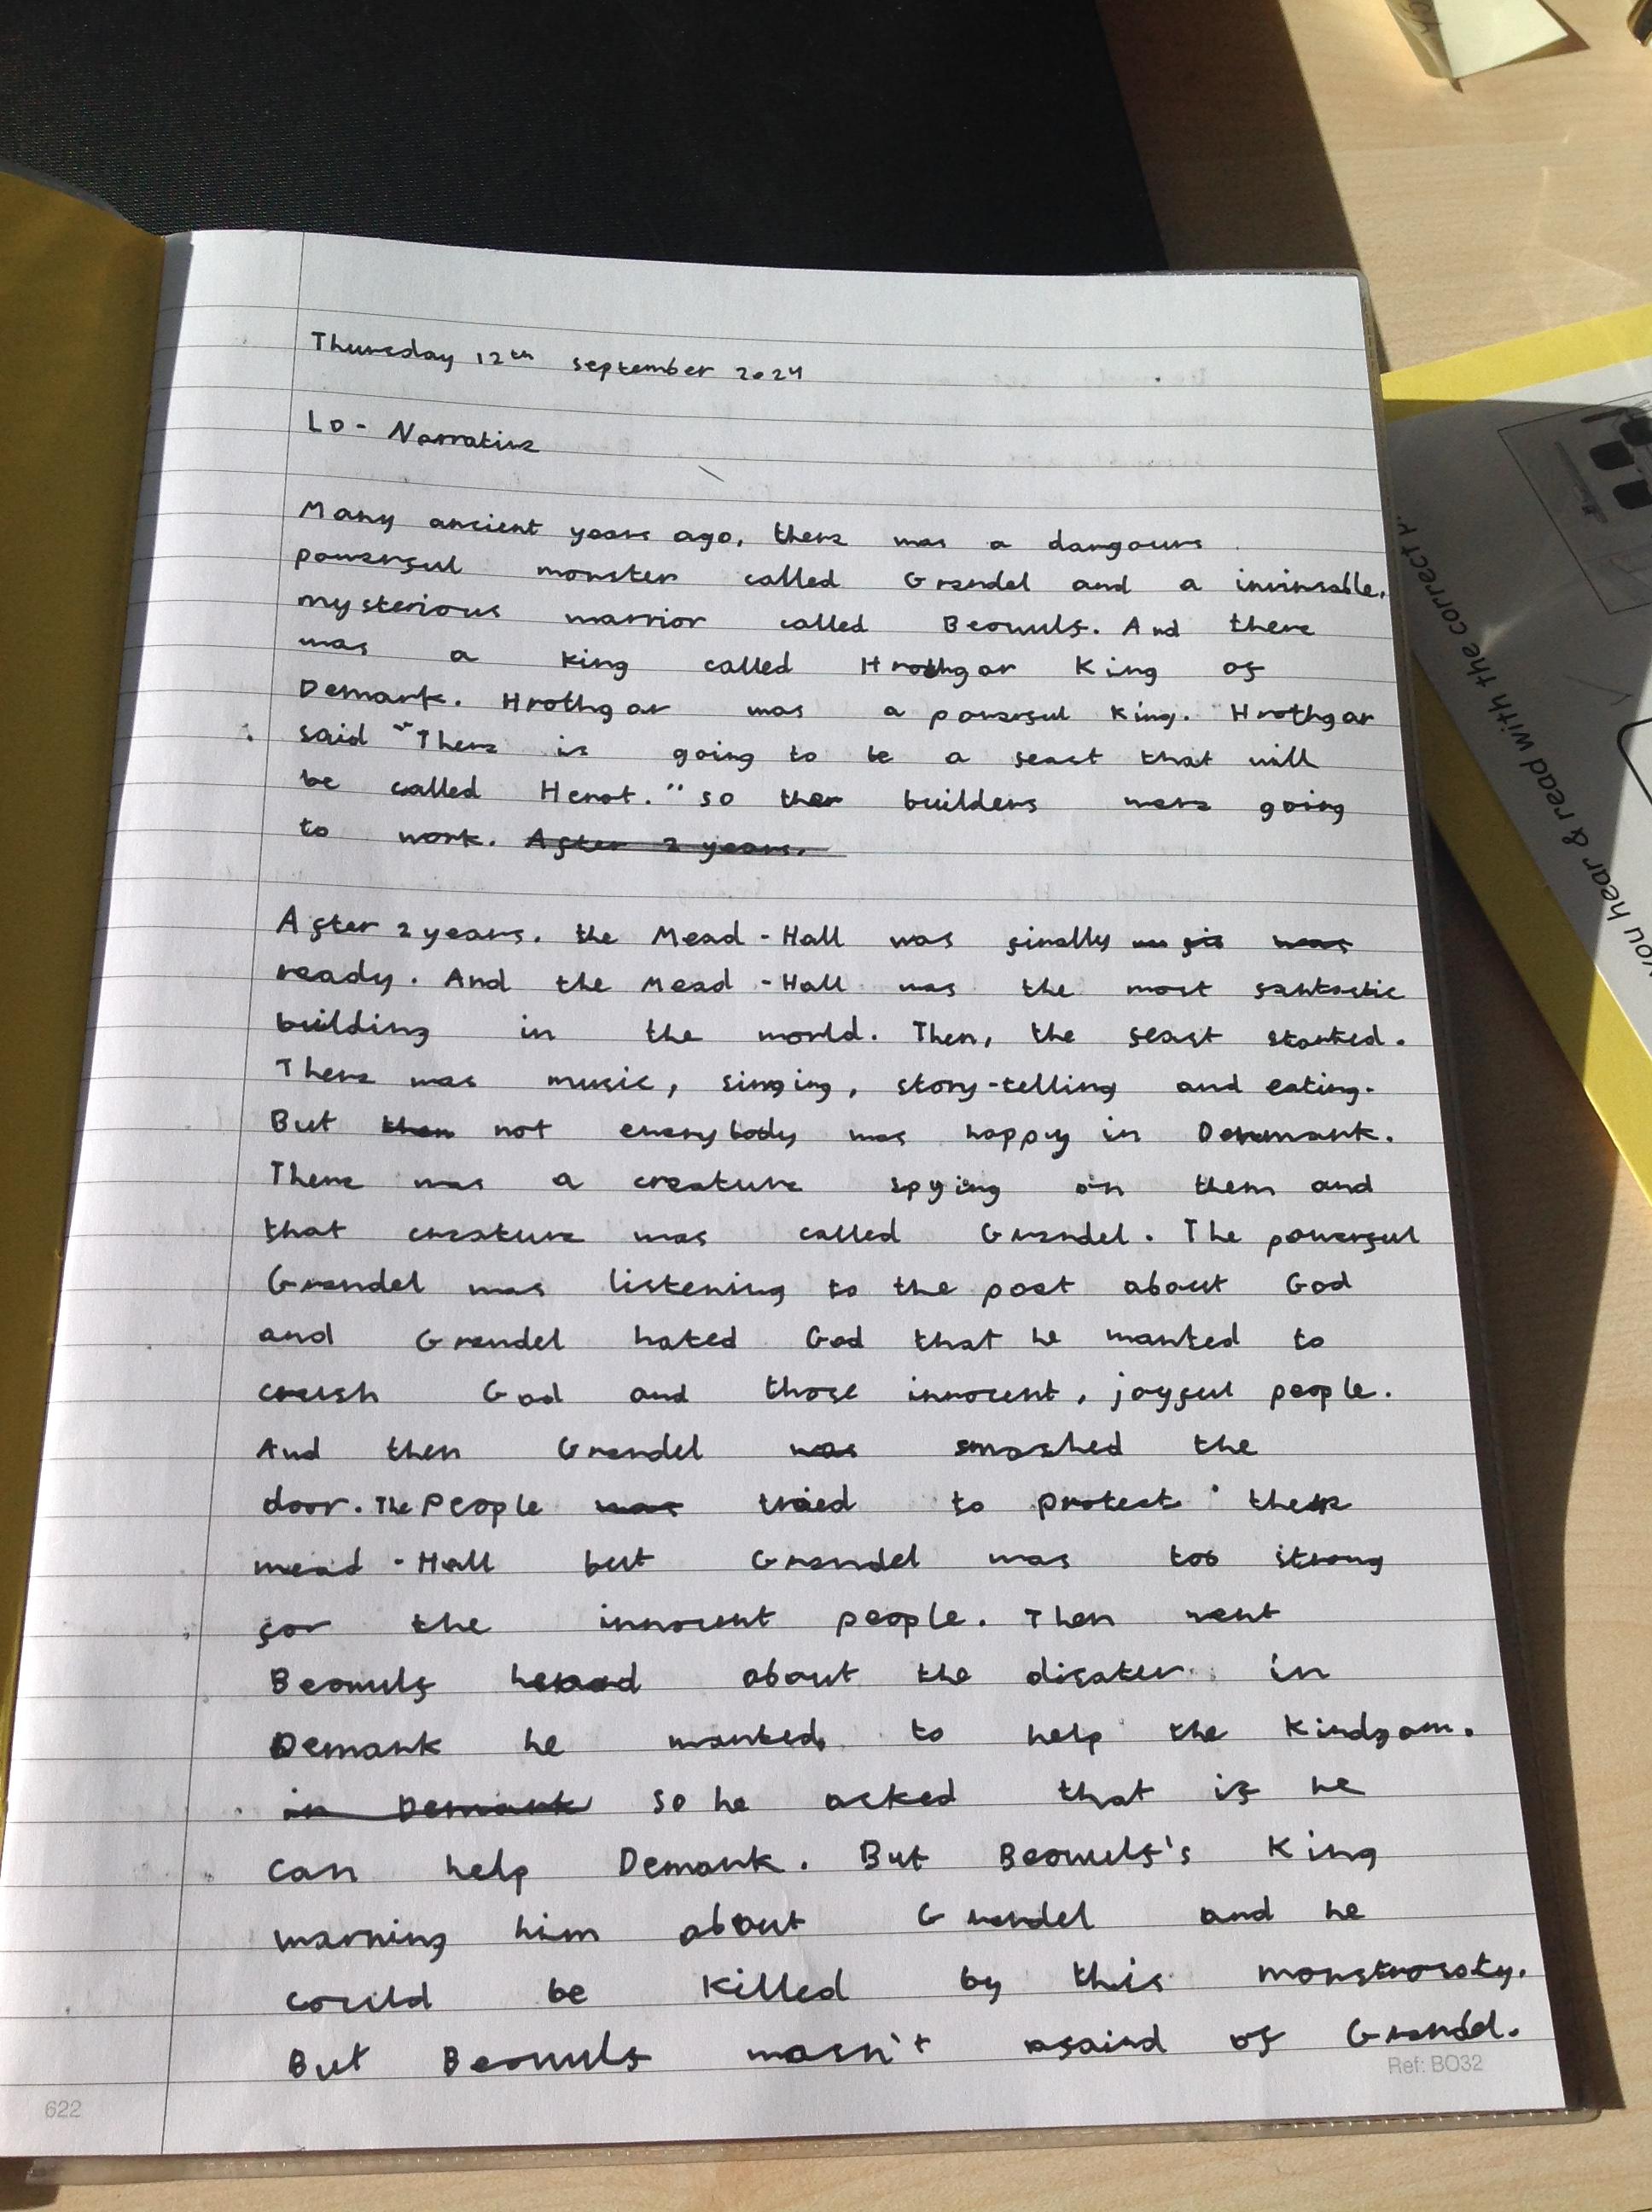 Thursday 12th september 2024
Lo - Narrative
Many ancient years ago, there was a dangours
powerful monster called Grendel and a invinsable,
mysterious warrior called Beowulf. And there
was a king called Hrothgar King of
Demark. Hrothgar was a powerful King. Hrothgar
said "There is going to be a feast that will
be called Herot." so the builders were going
to work. After 2 years.
After 2 years. the Mead-Hall was finally was
ready. And the Mead-Hall was the most fantastic
building in the world. Then, the feast started.
There was music, singing, story-telling and eating.
But then not everybody was happy in Denmark.
There was a creature spying on them and
that creature was called Grendel. The powerful
Grendel was listening to the poet about God
and Grendel hated God that he wanted to
crush God and those innocent, joyful people.
And then Grendel was smashed the
door. The People was tried to protect their
mead-Hall but Grendel was too strong
for the innocent people. Then went
Beowulf heard about the disater in
Demark he wanted to help the Kindgom.
in Demark So he acked that if he
can help Demark. But Beowulf's King
warning him about Grendel and he
could be killed by this monstrosity.
But Beowulf wasn't afaird of Grendel.
622
Ref: BO32
you hear & read with the correct